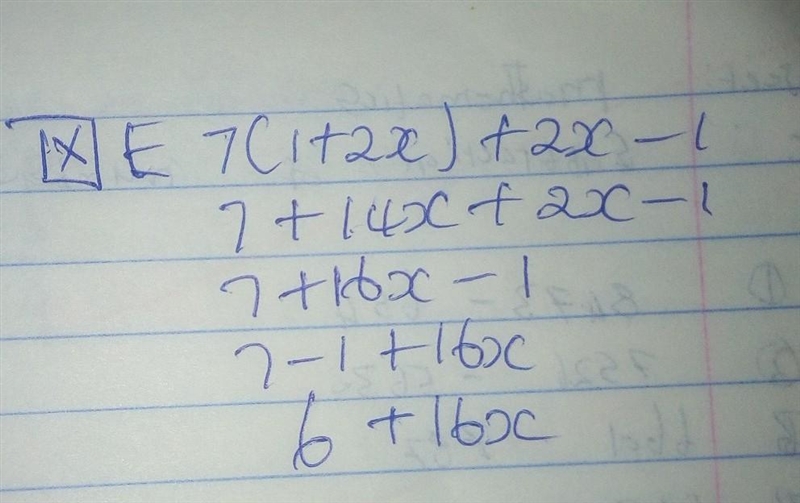 IX E 7(1+2x) + 2x - 1
7 + 14x + 2x - 1
7 + 16x - 1
7 - 1 + 16x
6 + 16x